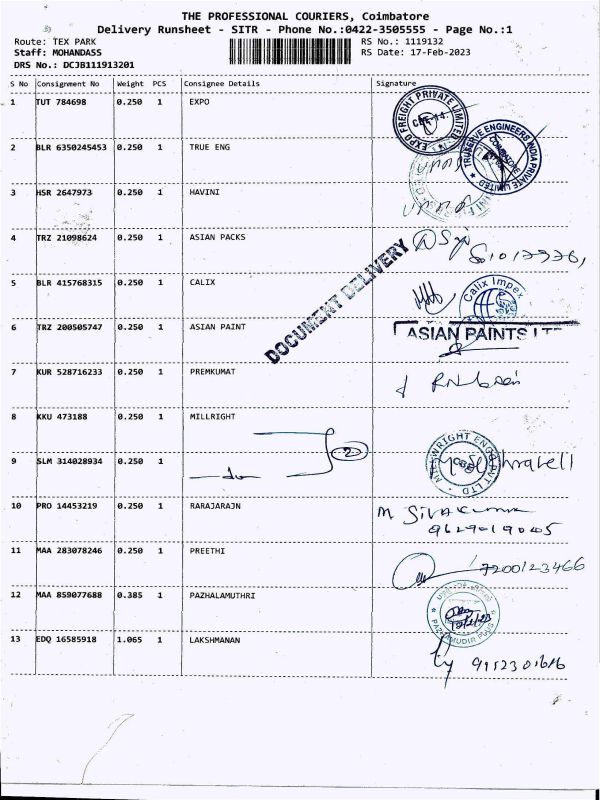 THE PROFESSIONAL COURIERS, Coimbatore
Delivery Runsheet - SITR - Phone No.:0422-3505555 - Page No.:1
Route: TEX PARK RS No.: 1119132
Staff: MOHANDASS RS Date: 17-Feb-2023
DRS No.: DCJB111913201
S No Consignment No Weight PCS Consignee Details Signature
1 TUT 784698 0.250 1 EXPO
EXPO FREIGHT PRIVATE LIMITED
2 BLR 6350245453 0.250 1 TRUE ENG
TRUSERVE ENGINEERS INDIA PRIVATE LIMITED
COIMBATORE
3 HSR 2647973 0.250 1 HAVINI
4 TRZ 21098624 0.250 1 ASIAN PACKS
DOCUMENT DELIVERY
5 BLR 415768315 0.250 1 CALIX
Calix Impex
6 TRZ 200505747 0.250 1 ASIAN PAINT
ASIAN PAINTS LT
7 KUR 528716233 0.250 1 PREMKUMAT
8 KKU 473188 0.250 1 MILLRIGHT
2
9 SLM 314028934 0.250 1
10 PRO 14453219 0.250 1 RARAJARAJN
M Sivakumar
11 MAA 283078246 0.250 1 PREETHI
7200123466
12 MAA 859077688 0.385 1 PAZHALAMUTHRI
13 EDQ 16585918 1.065 1 LAKSHMANAN